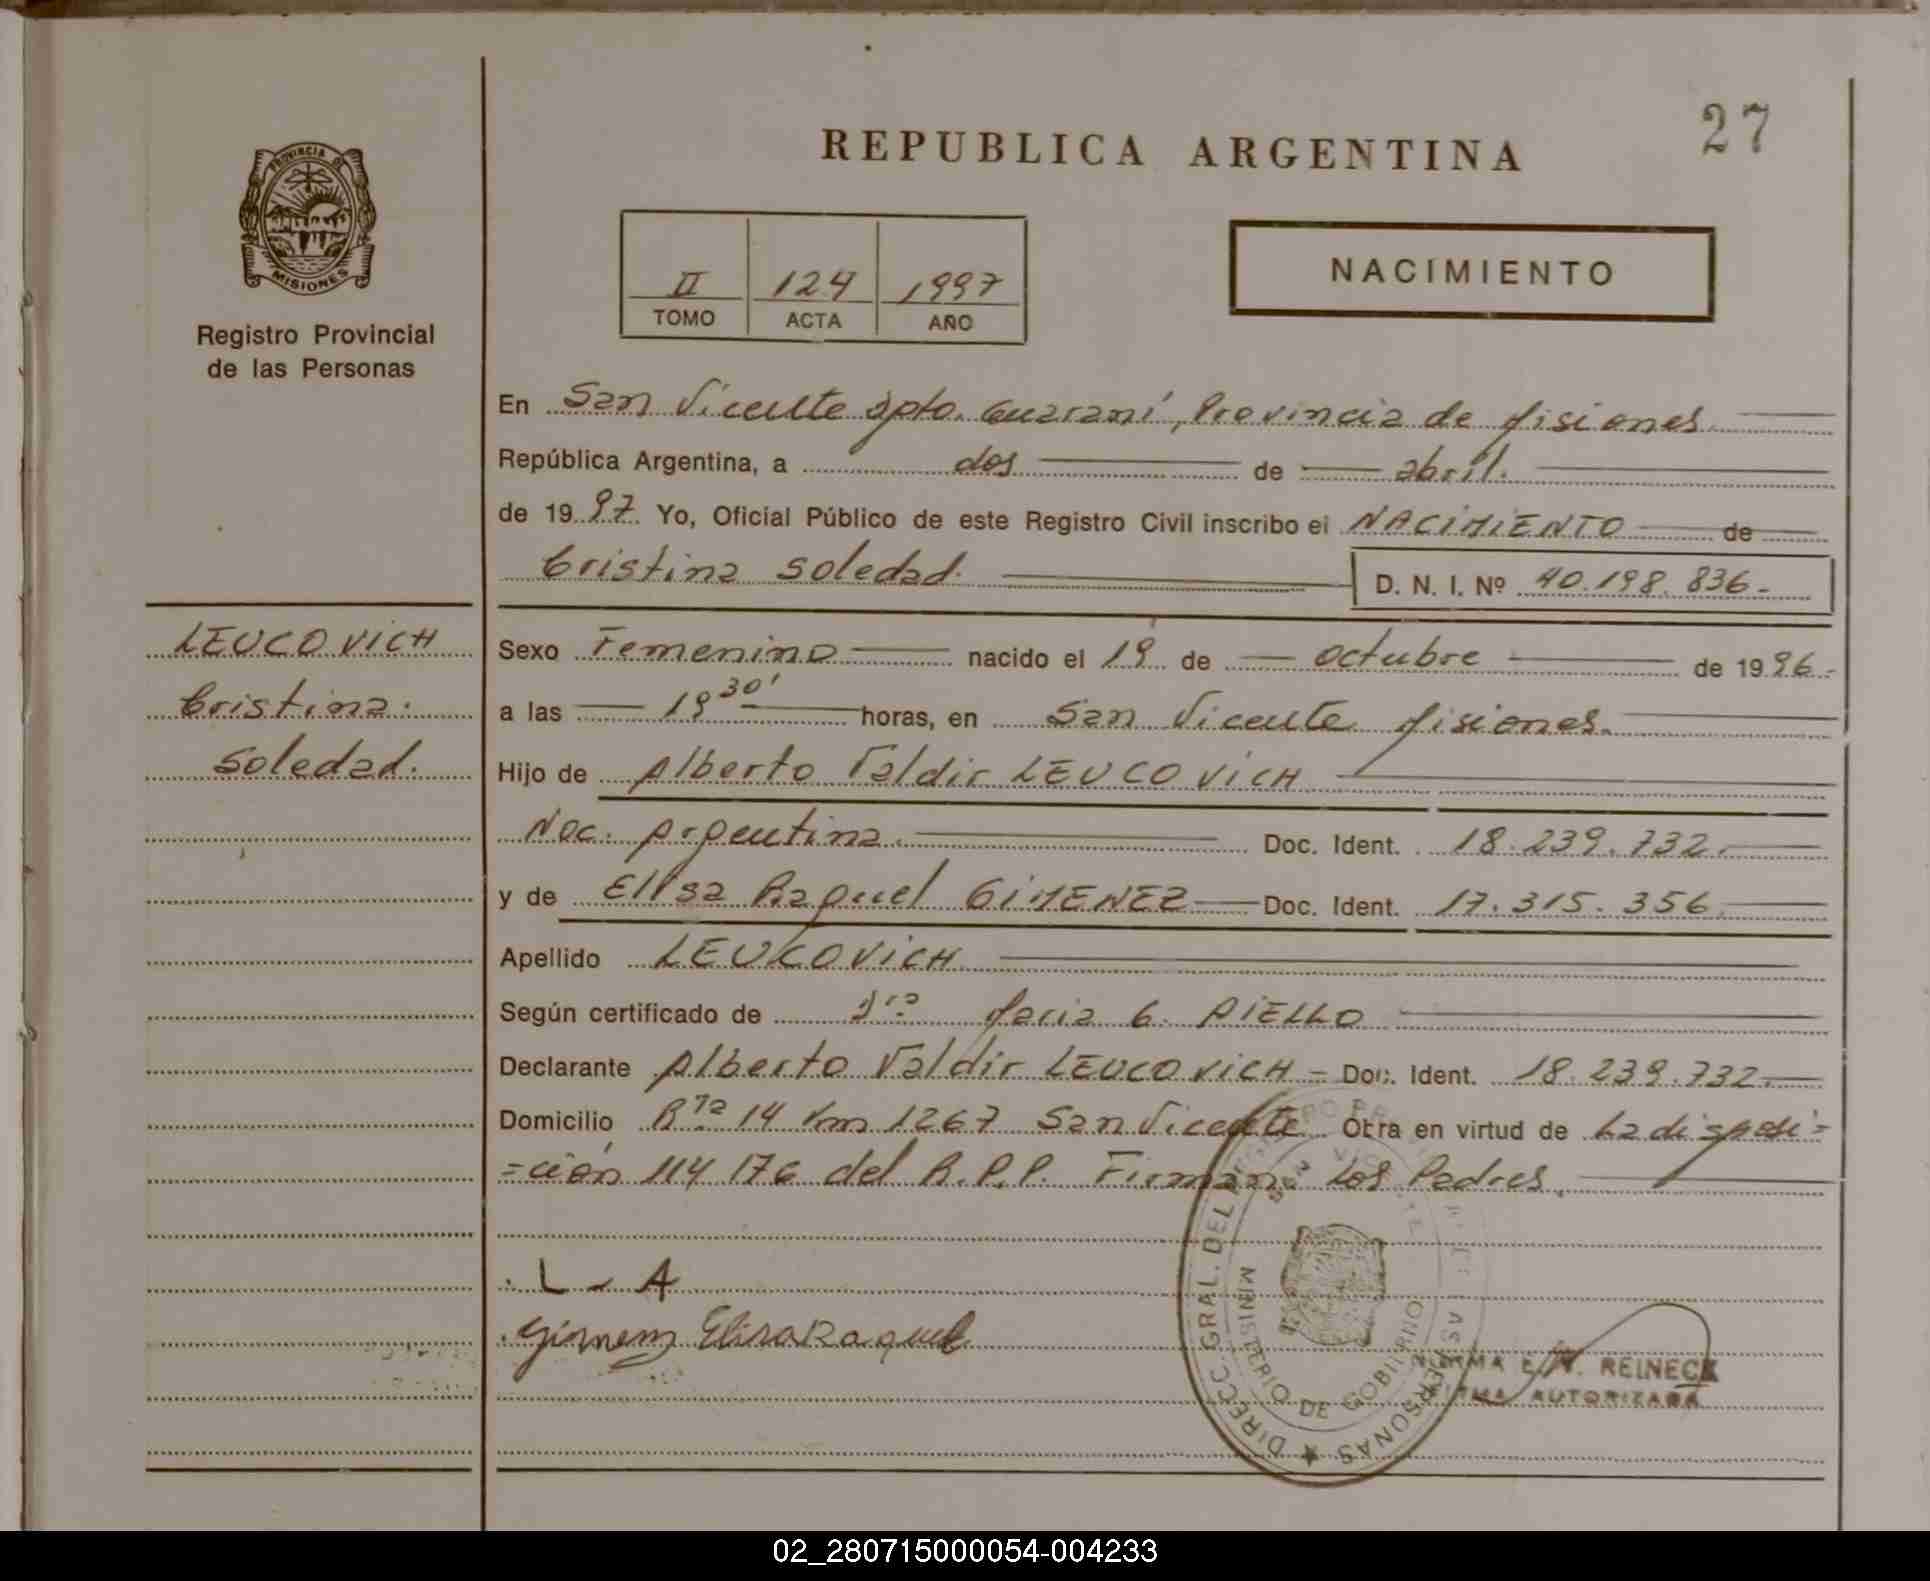 27
REPUBLICA ARGENTINA
PROVINCIA DE
MISIONES
Registro Provincial
de las Personas
II 124 1997
TOMO ACTA AÑO
NACIMIENTO
En San Vicente Dpto. Guaraní, Provincia de Misiones
República Argentina, a dos de abril.
de 1997 Yo, Oficial Público de este Registro Civil inscribo el NACIMIENTO de
Cristina Soledad. D. N. I. Nº 40.198.836.-
LEUCOVICH
Cristina.
Soledad.
Sexo Femenino nacido el 19 de octubre de 1996.
a las 19 30' horas, en San Vicente Misiones.
Hijo de Alberto Valdir LEUCOVICH
Nac. Argentina. Doc. Ident. 18.239.732.
y de Elisa Raquel GIMENEZ Doc. Ident. 17.315.356
Apellido LEUCOVICH
Según certificado de Dra Maria G. AIELLO
Declarante Alberto Valdir LEUCOVICH - Doc. Ident. 18.239.732.
Domicilio Rta 14 Km 1267 San Vicente Otra en virtud de La disposi=
=ción 114/76 del R.P.P. Firman: Los Padres.
L - A
Gimenez Elisa Raquel
DIRECC. GRAL. DEL PERSONAS
SAN VICENTE
MINISTERIO DE GOBIERNO
NORMA E. V. REINECK
FIRMA AUTORIZADA
02_280715000054-004233